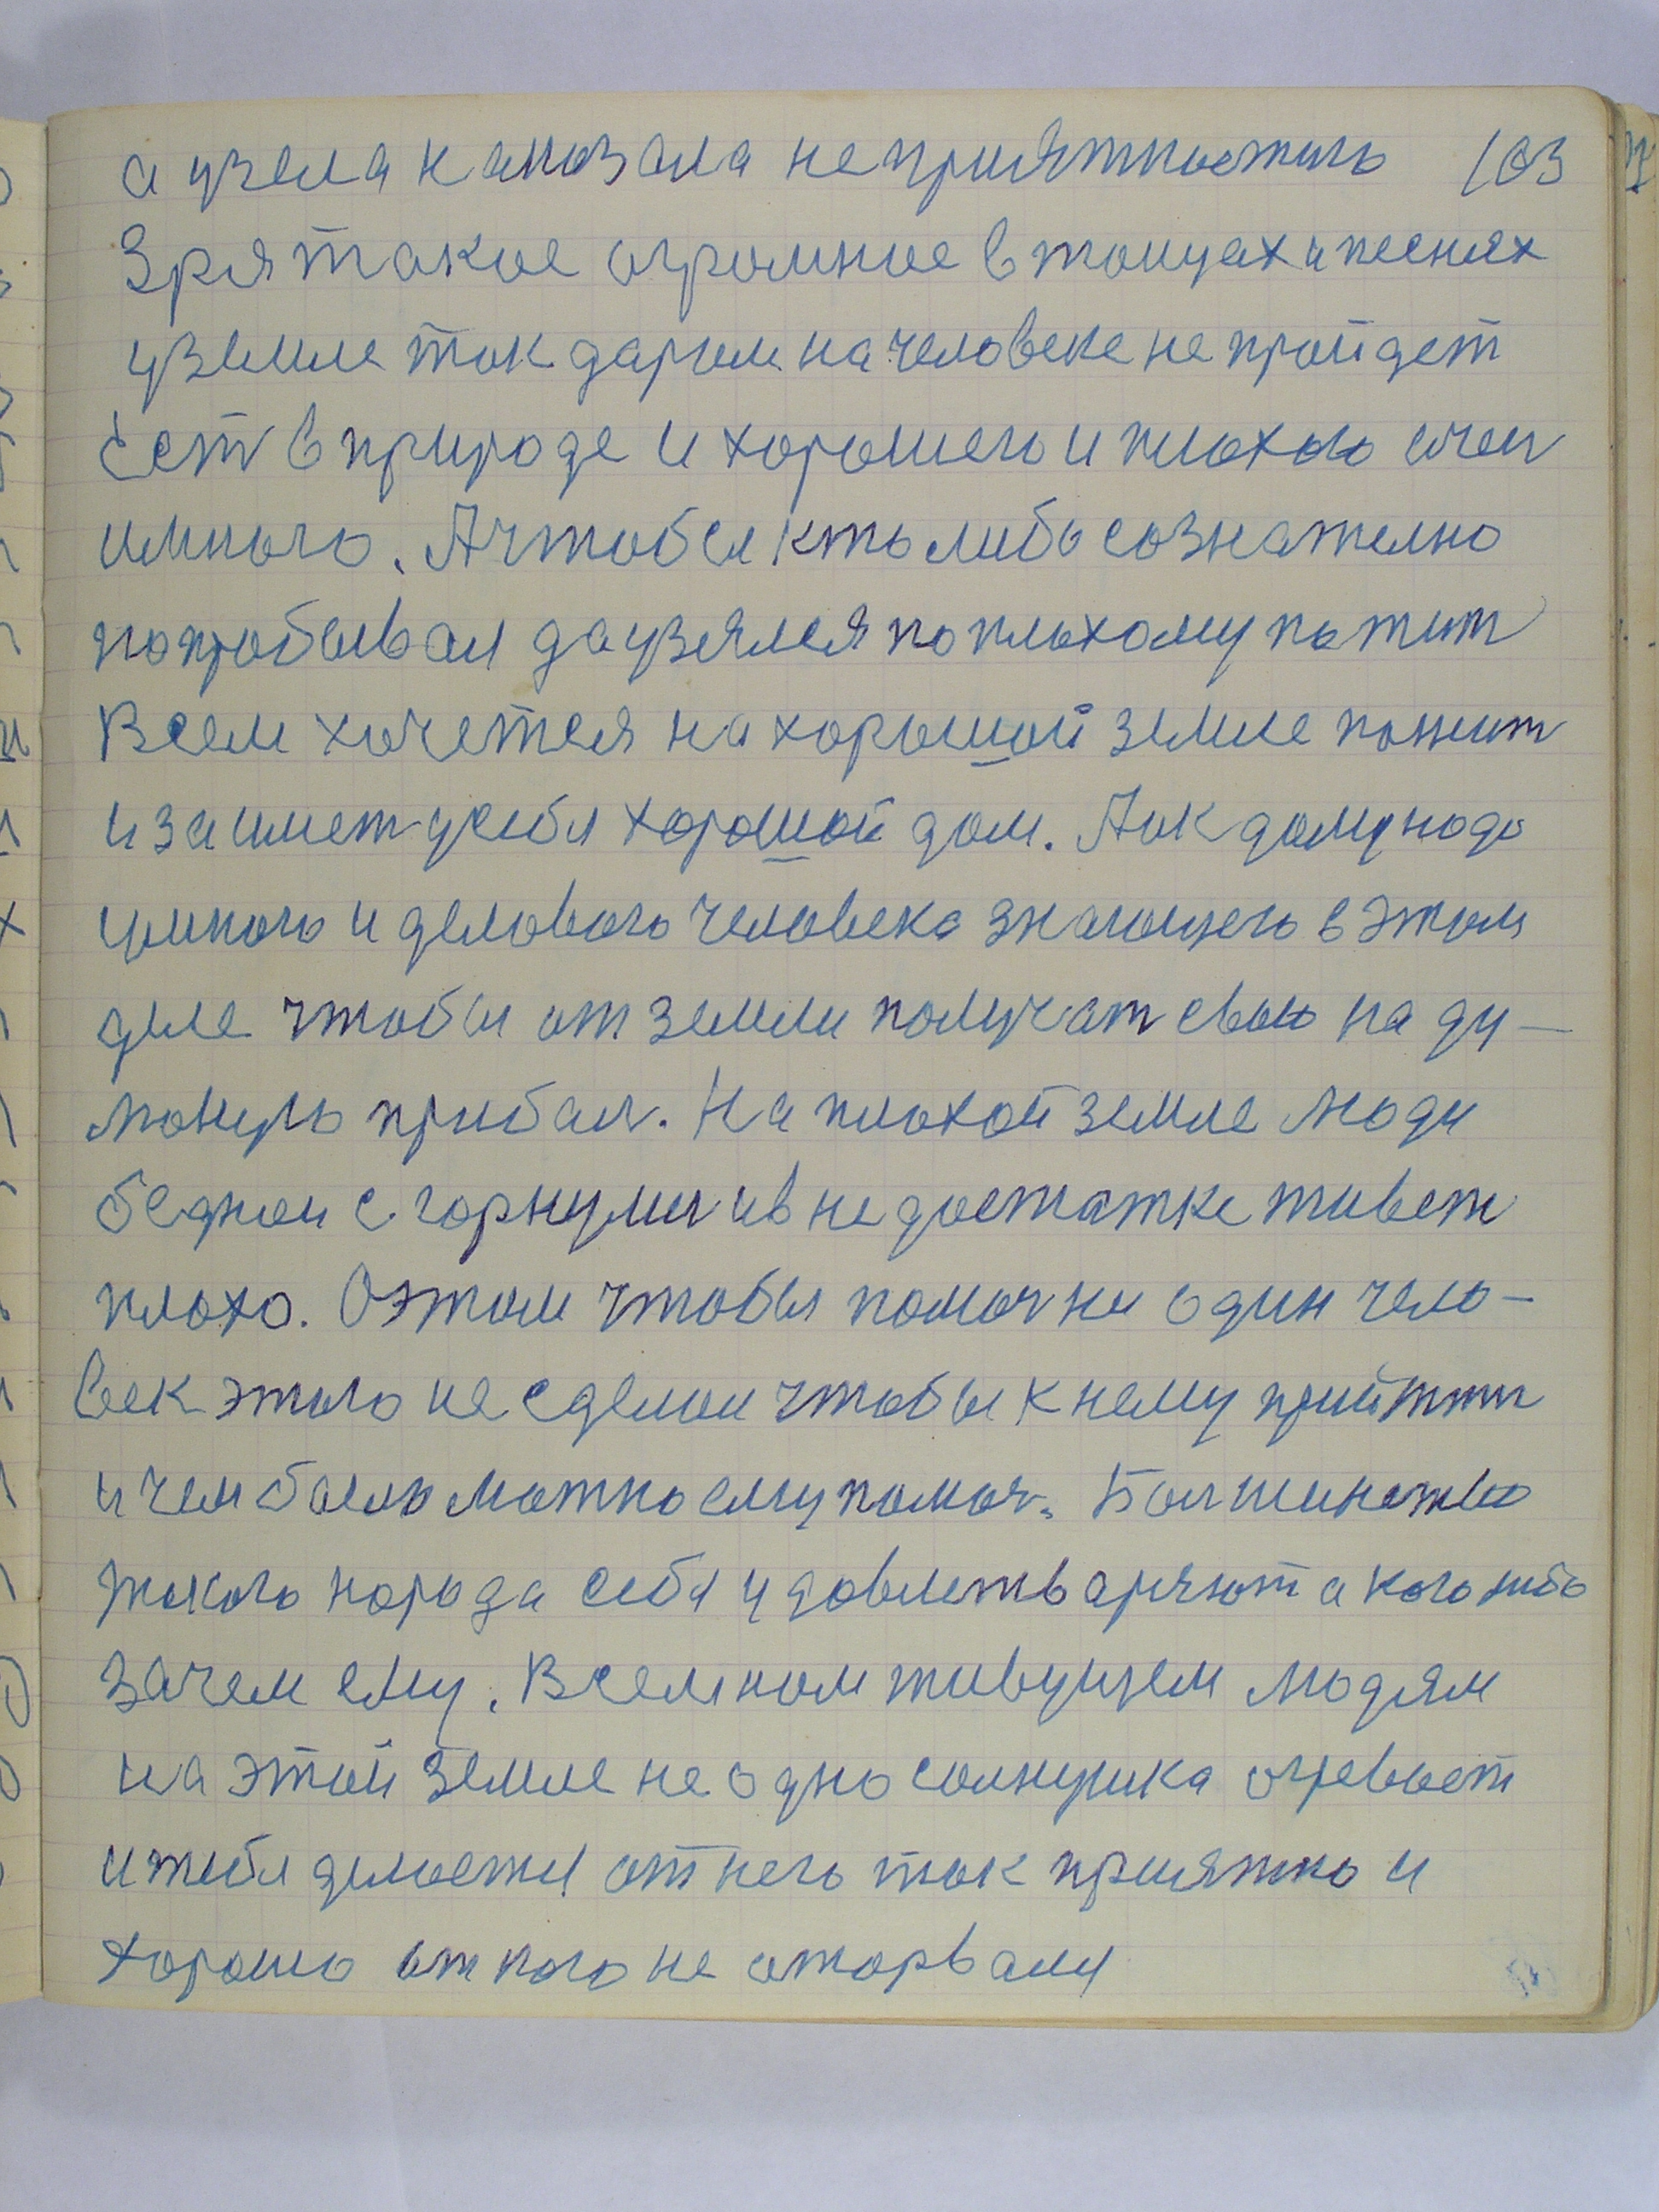 а узела наказала неприятностью 103
Зря такое огромное в танцах и песнях
уземле так даром на человеке не пройдет
Ест в природе и хорошего и плохого очен
много. А чтобы кто либо сознателно
попробывал да узялся по плохому пожит
Всем хочется на хорошой земле пожит
и заимет усебя хорошой дом. А к дому надо
умного и делового человека знающего в этом
деле чтобы от земли получат свою на ду-
монную прибал. На плохой земле люди
бедном с. горнулис и в недостатке живет
плохо. О этом чтобы помоч ни один чело-
век этого не сделал чтобы к нему прийтти
и чем было можно ему помоч. Болшинство
такого народа себя удовлетваряют а кого либо
зачем ему. Всем нам живущем людям
на этой земле не одно солнушка огревает
и тебя делается от него так приятно и
хорошо от кого не оторвался